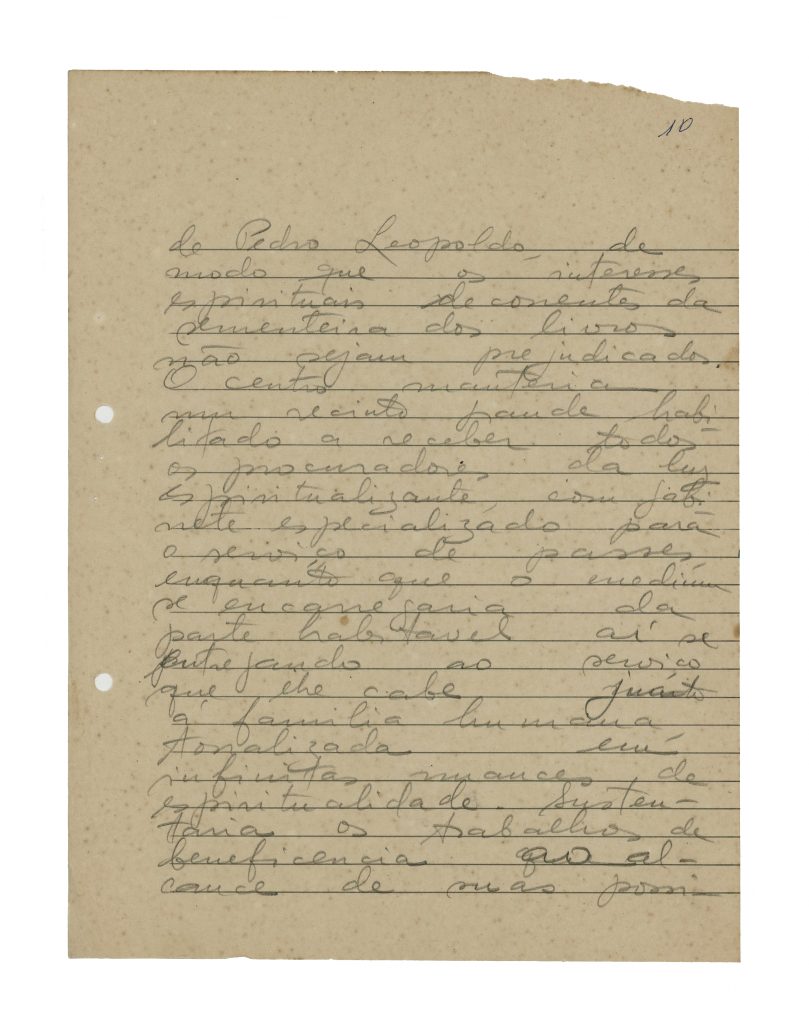 10
de Pedro Leopoldo, de
modo que os interesses
espirituais decorrentes da
sementeira dos livros
não sejam prejudicados.
O centro manteria
um recinto grande habi-
litado a receber todos
os procuradores da luz
espiritualizante, com gabi-
nete especializado para
o serviço de passes,
enquanto que o medium
se encarregaria da
parte habitavel aí se
entregando ao serviço
que lhe cabe junto
á familia humana
tonalizada em
infinitas nuances de
espiritualidade. Susten-
taria os trabalhos de
beneficencia ao al-
cance de suas possi-